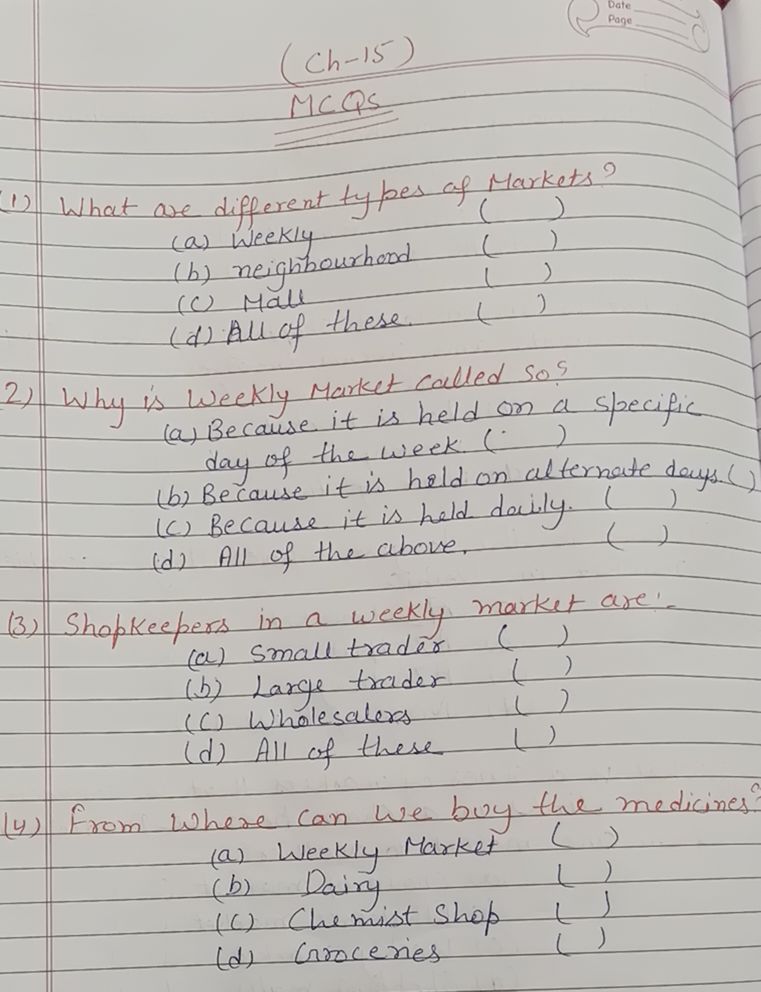 Date
Page
(Ch-15)
MCQs
(1) What are different types of Markets?
(a) Weekly ( )
(b) neighbourhood ( )
(c) Mall ( )
(d) All of these. ( )
2) Why is Weekly Market called so?
(a) Because it is held on a specific
day of the week. ( )
(b) Because it is held on alternate days. ( )
(c) Because it is held daily. ( )
(d) All of the above. ( )
(3) Shopkeepers in a weekly market are:-
(a) Small trader ( )
(b) Large trader ( )
(c) Wholesalers ( )
(d) All of these ( )
(4) From where can we buy the medicines?
(a) Weekly Market ( )
(b) Dairy ( )
(c) Chemist Shop ( )
(d) Groceries ( )